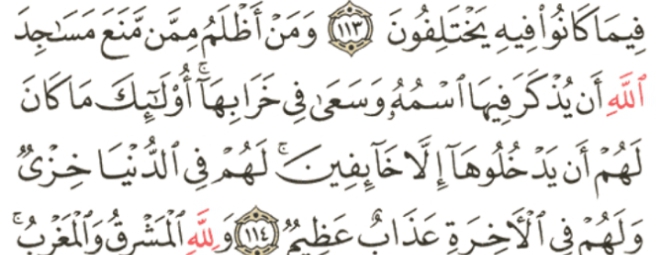 فِيمَا كَانُوا۟ فِيهِ يَخْتَلِفُونَ ١١٣ وَمَنْ أَظْلَمُ مِمَّن مَّنَعَ مَسَٰجِدَ
ٱللَّهِ أَن يُذْكَرَ فِيهَا ٱسْمُهُۥ وَسَعَىٰ فِى خَرَابِهَآ ۚ أُو۟لَٰٓئِكَ مَا كَانَ
لَهُمْ أَن يَدْخُلُوهَآ إِلَّا خَآئِفِينَ ۚ لَهُمْ فِى ٱلدُّنْيَا خِزْىٌ
وَلَهُمْ فِى ٱلْءَاخِرَةِ عَذَابٌ عَظِيمٌ ١١٤ وَلِلَّهِ ٱلْمَشْرِقُ وَٱلْمَغْرِبُ ۚ